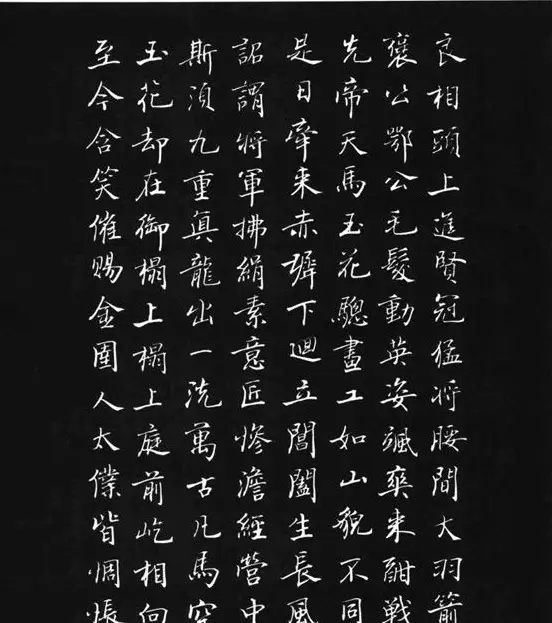 良相頭上進賢冠猛將腰間大羽箭
褒公鄂公毛髮動英姿颯爽来酣戰
先帝天馬玉花驄畫工如山貌不同
是日牽来赤墀下迴立閶闔生長風
詔謂將軍拂絹素意匠慘澹經營中
斯須九重眞龍出一洗萬古凡馬空
玉花却在御榻上榻上庭前屹相向
至今含笑催賜金圉人太僕皆惆悵